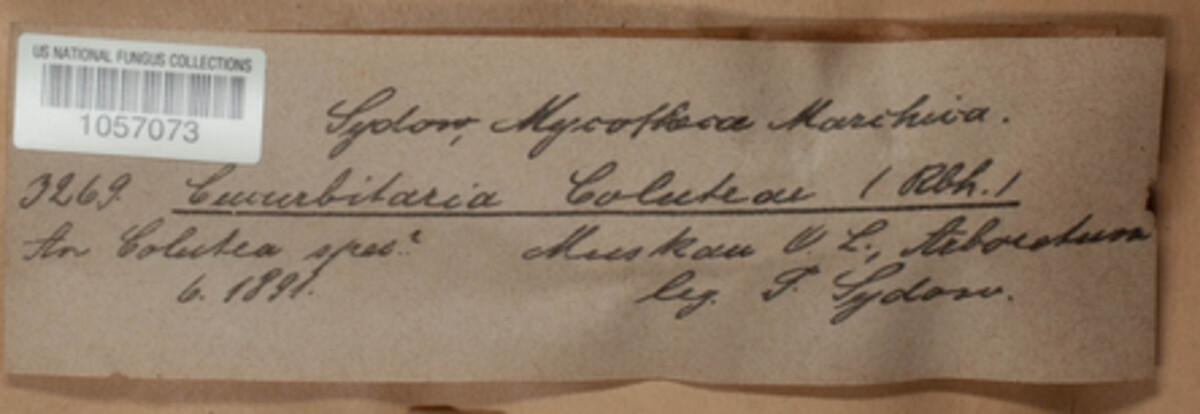 US NATIONAL FUNGUS COLLECTIONS
1057073
Sydow, Mycotheca Marchica.
3269. Cucurbitaria Coluteae (Rbh.)
An Colutea spec. Muskau O. L., Arboretum
6. 1891. leg. P. Sydow.